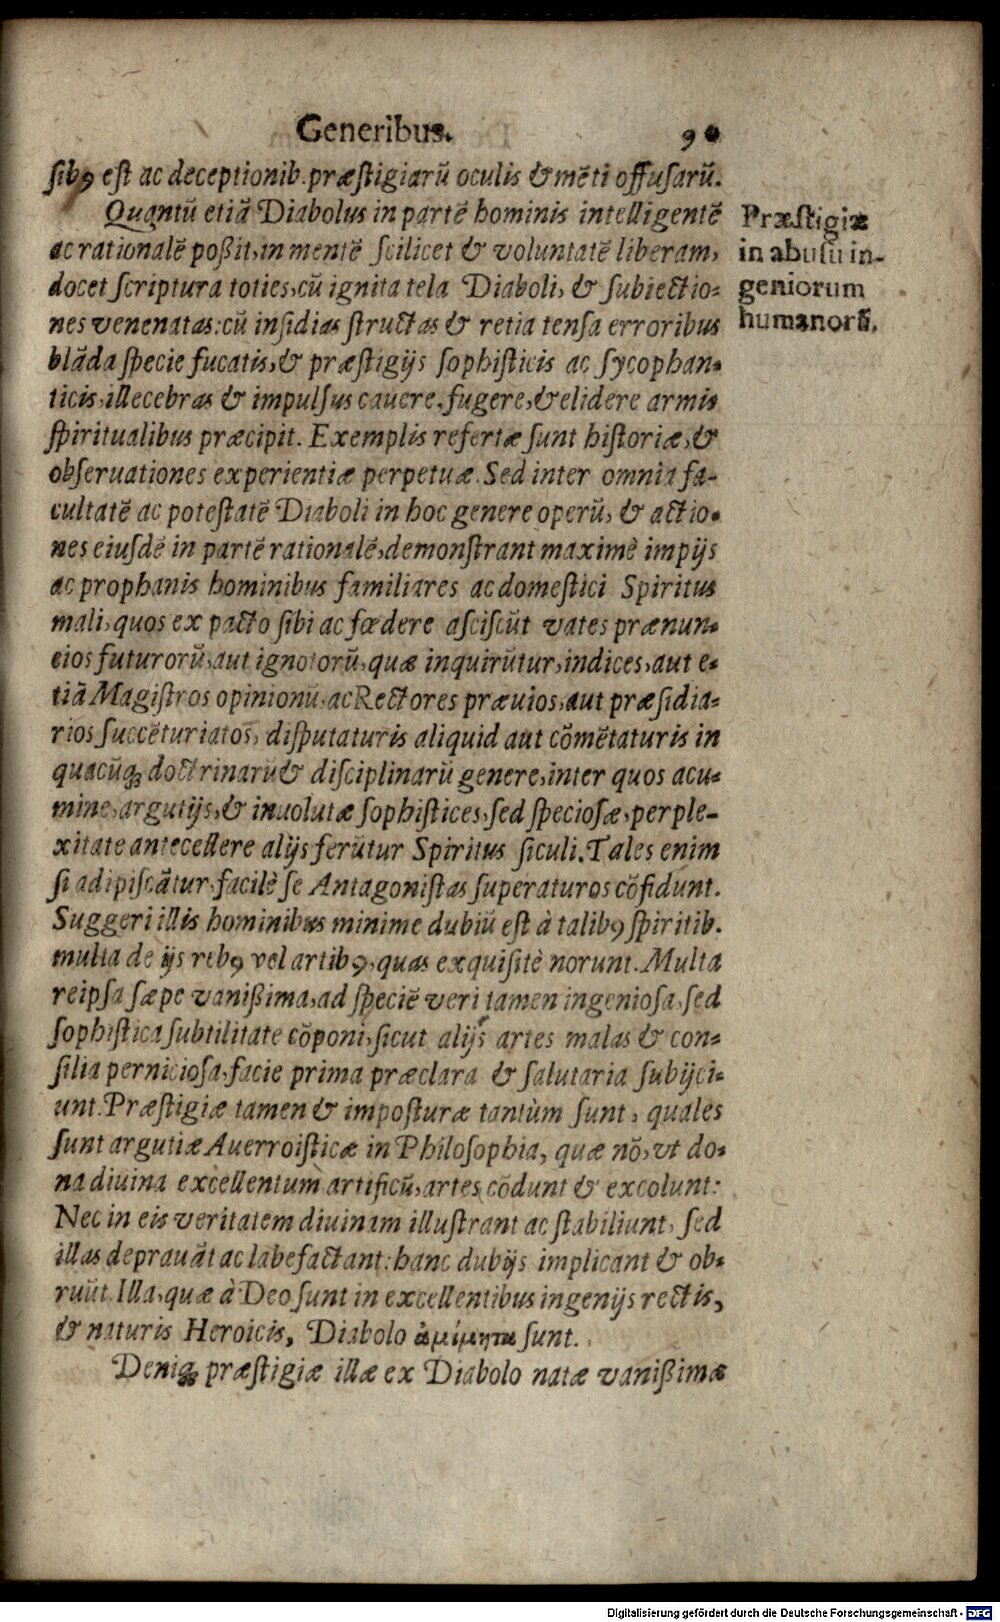 Generibus. 90
ſibꝰ eſt ac deceptionib. præſtigiarũ oculis & mẽti offuſarũ.
Quantũ etiã Diabolus in partẽ hominis intelligentẽ
ac rationalẽ poßit, in mentẽ ſcilicet & voluntatẽ liberam,
docet ſcriptura toties, cũ ignita tela Diaboli, & ſubiectio-
nes venenatas: cũ inſidias ſtructas & retia tenſa erroribus
blãda ſpecie fucatis, & præſtigijs ſophiſticis ac ſycophan-
ticis, illecebras & impulſus cauere, fugere, & elidere armis
ſpiritualibus præcipit. Exemplis refertæ ſunt hiſtoriæ, &
obſeruationes experientiæ perpetuæ. Sed inter omnia fa-
cultatẽ ac poteſtatẽ Diaboli in hoc genere operũ, & actio-
nes eiuſdẽ in partẽ rationalẽ, demonſtrant maximè impijs
ac prophanis hominibus familiares ac domeſtici Spiritus
mali, quos ex pacto ſibi ac fœdere aſciſcũt vates prænun-
cios futurorũ, aut ignotorũ, quæ inquirũtur, indices, aut e-
tiã Magiſtros opinionũ, ac Rectores præuios, aut præſidia-
rios ſuccẽturiatos, diſputaturis aliquid aut cõmẽtaturis in
quacũqꝫ doctrinarũ & diſciplinarũ genere, inter quos acu-
mine, argutijs, & inuolutæ ſophiſtices, ſed ſpecioſæ, perple-
xitate antecellere alijs ferũtur Spiritus ſiculi. Tales enim
ſi adipiſcãtur, facilè ſe Antagoniſtas ſuperaturos cõfidunt.
Suggeri illis hominibus minime dubiũ eſt à talibꝰ ſpiritib.
multa de ijs rebꝰ vel artibꝰ, quas exquiſitè norunt. Multa
reipſa ſæpe vanißima, ad ſpeciẽ veri tamen ingenioſa, ſed
ſophiſtica ſubtilitate cõponi, ſicut alijs artes malas & con-
ſilia pernicioſa, facie prima præclara & ſalutaria ſubijci-
unt. Præſtigiæ tamen & impoſturæ tantùm ſunt, quales
ſunt argutiæ Auerroiſticæ in Philoſophia, quæ nõ, vt do-
na diuina excellentum artificũ, artes cõdunt & excolunt:
Nec in eis veritatem diuinam illuſtrant ac ſtabiliunt, ſed
illas deprauãt ac labefactant: hanc dubijs implicant & ob-
ruũt. Illa, quæ à Deo ſunt in excellentibus ingenijs rectis,
& naturis Heroicis, Diabolo ἀμίμητα ſunt.
Deniqꝫ præſtigiæ illæ ex Diabolo natæ vanißimæ
Præſtigiæ
in abuſu in-
geniorum
humanorũ.
Digitalisierung gefördert durch die Deutsche Forschungsgemeinschaft - DFG